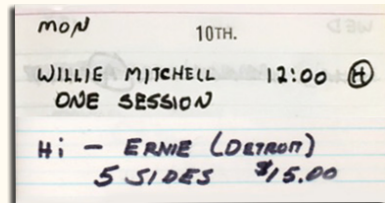 MON 10TH.
WILLIE MITCHELL 12:00 Ⓗ
ONE SESSION
Hi – ERNIE (DETROIT)
5 SIDES $15.00